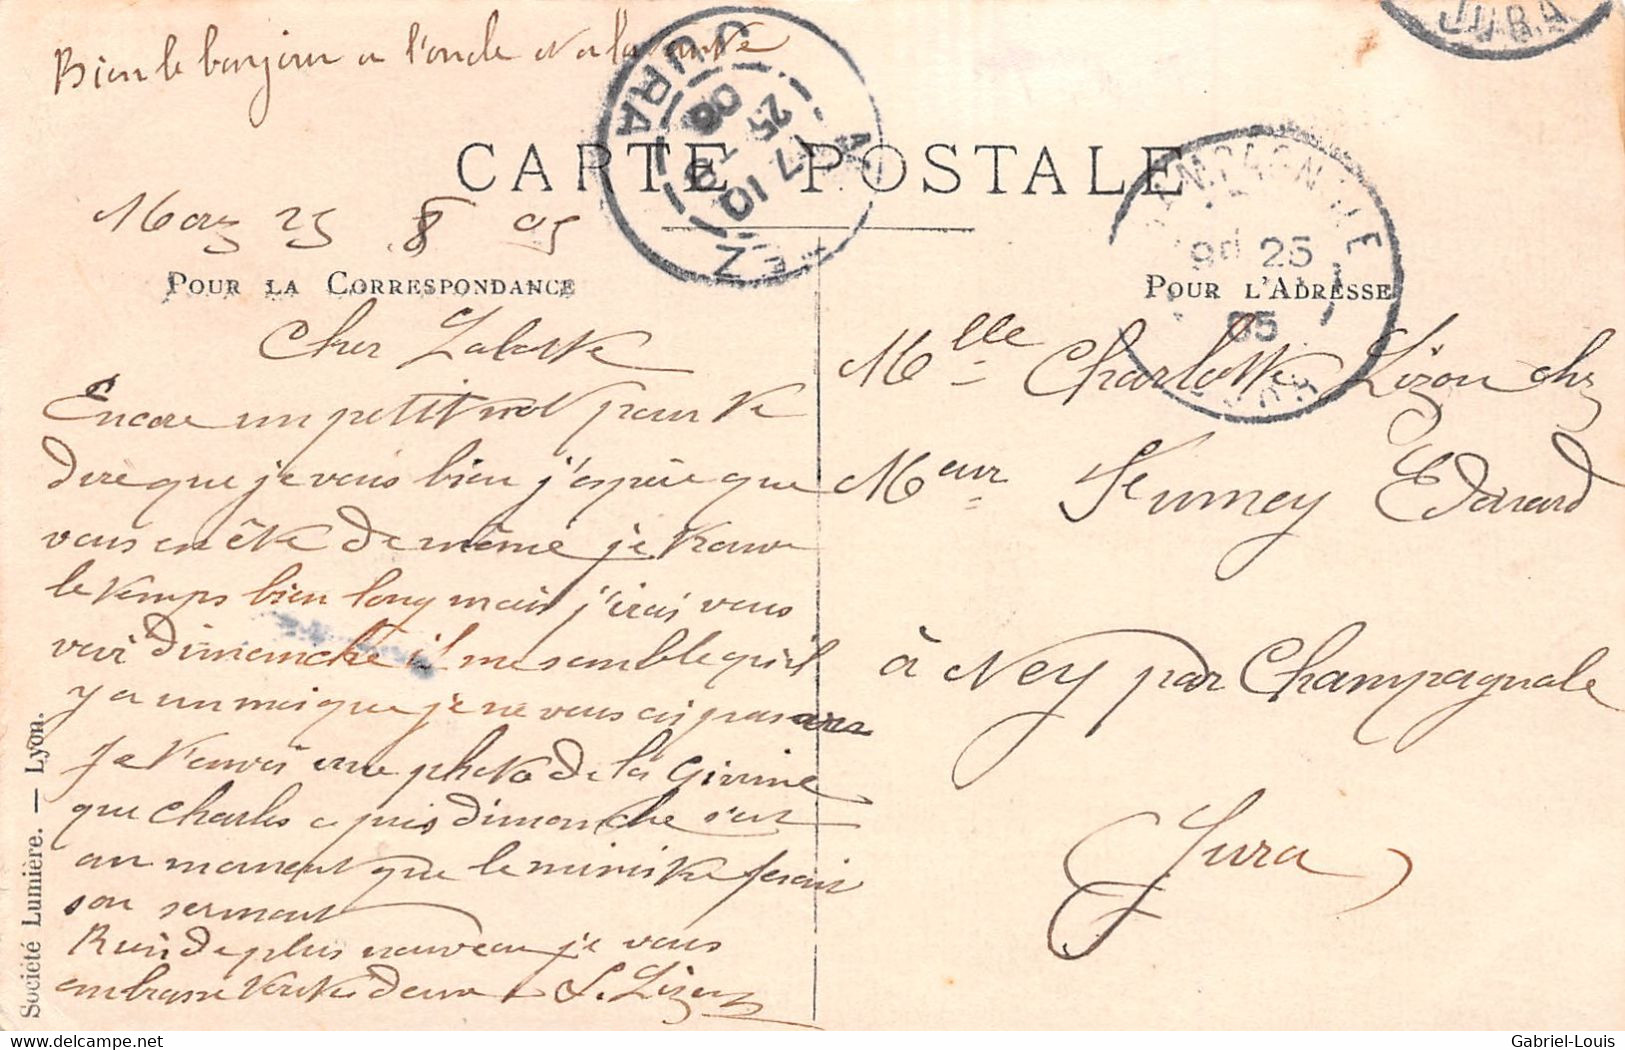 Bien le bonjour a l'oncle et a la tante
CARTE POSTALE
Morez 25 8 05
POUR LA CORRESPONDANCE
Cher
Encore un petit mot pour te
dire que je vais bien j'espère que
vous en ête de même je trouve
le temps bien long mais j'irai vous
voir dimanche il me semble qu'il
y a un mois que je ne vous ai pas vu
Je t'envoi une photo de la
que Charles a pris dimanche s'est
au moment que le ministre ferait
son serment
Rien de plus nouveau je vous
embrasse toutes deux L. Lizon
Société Lumière. — Lyon.
POUR L'ADRESSE
Mlle Charlotte Lizon chz
Mœur Edouard
à Ney par Champagnole
Jura
JURA
EZ
17 10
25
JURA
9d 25
05
JURA
Gabriel-Louis